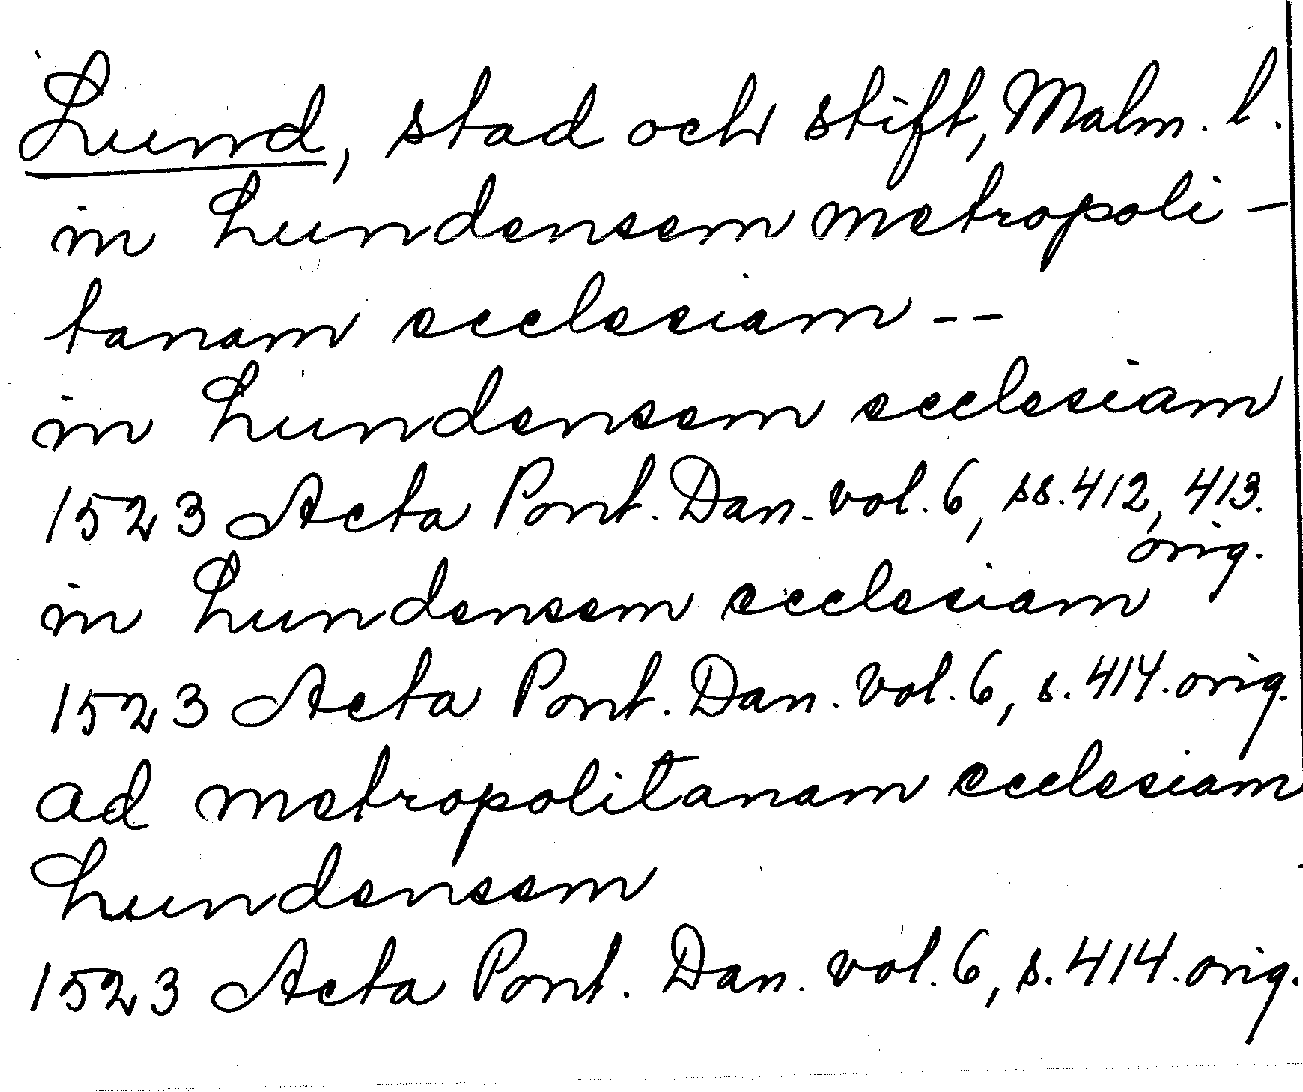 Lund, stad och stift, Malm. l.
in Lundensem metropoli-
tanam ecclesiam --
in Lundensem ecclesiam
1523 Acta Pont. Dan. vol. 6, ss. 412, 413.
orig.
in Lundensem ecclesiam
1523 Acta Pont. Dan. vol. 6, s. 414. orig.
ad metropolitanam ecclesiam
Lundensem
1523 Acta Pont. Dan. vol. 6, s. 414. orig.